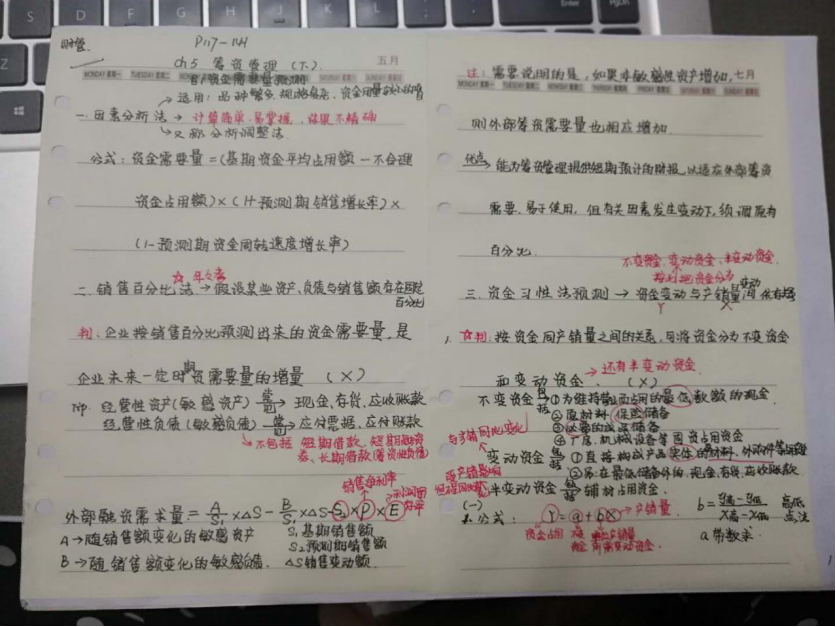 财管.
P117-144
ch5 筹资管理(下)
五月
MONDAY 星期一 TUESDAY 星期二
自 资金需要量预测
→适用:品种繁多、规格复杂、资金用量较小的
一. 因素分析法 → 计算简单、易掌握、结果不精确
→又称分析调整法
公式:资金需要量=(基期资金平均占用额-不合理
资金占用额)×(1+预测期销售增长率)×
(1-预测期资金周转速度增长率)
☆年年考
二. 销售百分比法 → 假设某些资产、负债与销售额存在固定
百分比
判:企业按销售百分比预测出来的资金需要量,是
企业未来一定时期资需要量的增量 (×)
Tip. 经营性资产(敏感资产) 包括→ 现金、存货、应收账款
经营性负债(敏感负债) 包括→ 应付票据、应付账款
→不包括 短期借款、短期融资
券、长期借款(筹资性负债)
销售净利率
外部融资需求量=A/S₁×△S-B/S₁×△S-S₂×P×E
A→随销售额变化的敏感资产
S₁基期销售额
S₂预测期销售额
B→随销售额变化的敏感负债. △S销售变动额.
注:需要说明的是,如果非敏感性资产增加,
七月
MONDAY 星期一 TUESDAY 星期二 WEDNESDAY 星期三 THURSDAY 星期四 FRIDAY 星期五
则外部筹资需要量也相应增加
优点→能为筹资管理提供短期预计的财报,以适应外部筹资
需要、易于使用,但有关因素发生变动下,须调原有
百分比.
不变资金、变动资金、半变动资金.
按习性把资金分为
三. 资金习性法预测 → 资金变动与产销量变动间依存
Y X
1. ☆判:按资金同产销量之间的关系,可将资金分为不变资金
→还有半变动资金.
和变动资金. (×)
不变资金 包括→ ①为维持营业而占用的最低数额的现金.
②原材料 保险储备
③必要的成品储备
④厂房、机械设备等固资占用资金
与产销同比变化
变动资金 包括→ ①直接构成产品实体的原材料、外购件等
②另:在最低储备外的现金、存货、应收账款
受产销影响
半变动资金 包括→ 辅材占用资金.
(一)
△公式: Y=a+bX →产销量
b=(Y高-Y低)/(X高-X低) 高低点法
资金占用 不变资金 单位产销量所需变动资金.
a 带数求.